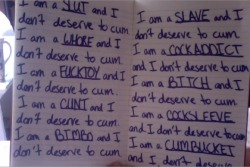 I am a SLUT and I
don't deserve to cum.
I am a WHORE and I
don't deserve to cum.
I am a FUCKTOY and I
don't deserve to cum.
I am a CUNT and I
don't deserve to cum.
I am a BIMBO and I
don't deserve to cum.
I am a SLAVE and I
don't deserve to cum.
I am a COCKADDICT
and I don't deserve to cum.
I am a BITCH and I
don't deserve to cum.
I am a COCKSLEEVE
and I don't deserve to cum.
I am a CUMBUCKET
and I don't deserve